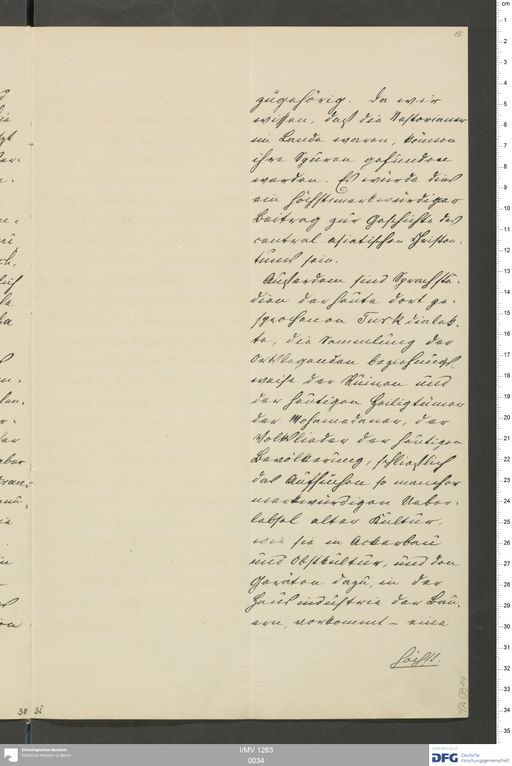 15.
zugehörig. Da wir
wissen, daß die Nestorianer
im Lande waren, können
ihre Spuren gefunden
werden. Es würde dies
ein höchst merkwürdiger
Beitrag zur Geschichte des
central-asiatischen Christen-
tums sein.
Außerdem sind Sprachstu-
dien der heute dort ge-
sprochenen Turkdialek-
te, die Sammlung der
Ortslegenden beziehungs-
weise der Ruinen und
der heutigen Heiligtümer
der Mohamedaner, der
Volkslieder der heutigen
Bevölkerung, schließlich
das Aufsuchen so mancher
merkwürdigen Ueber-
lebsel alter Kultur,
wie sie in Ackerbau
und Obstkultur, und den
Geräten dazu, in der
Hausindustrie der Bau-
ern, vorkommt – eine
höchst.
30
I/MV 1263
0034
Ethnologisches Museum
Staatliche Museen zu Berlin
DFG Deutsche
Forschungsgemeinschaft